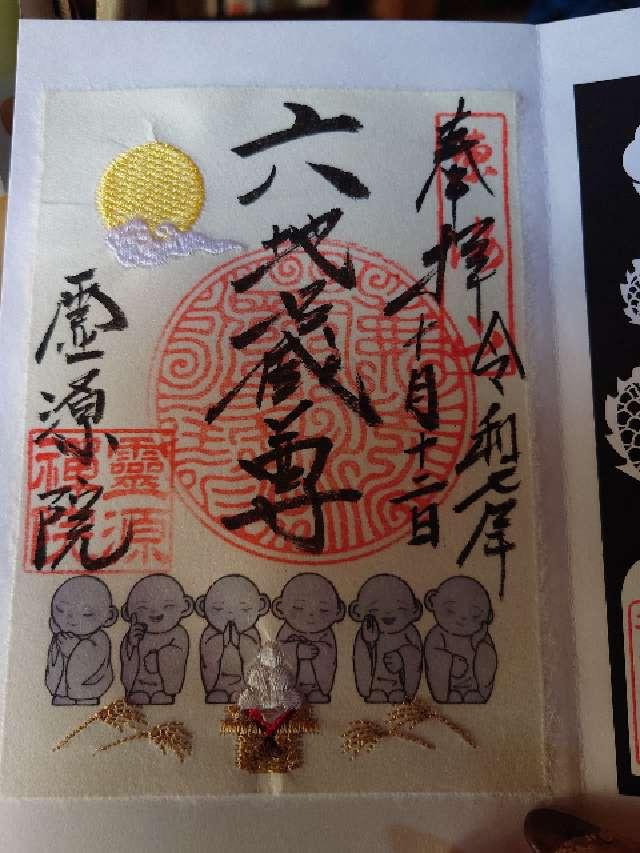 奉拝 令和七年
十月十二日
六地蔵尊
霊源院
靈源
禅院